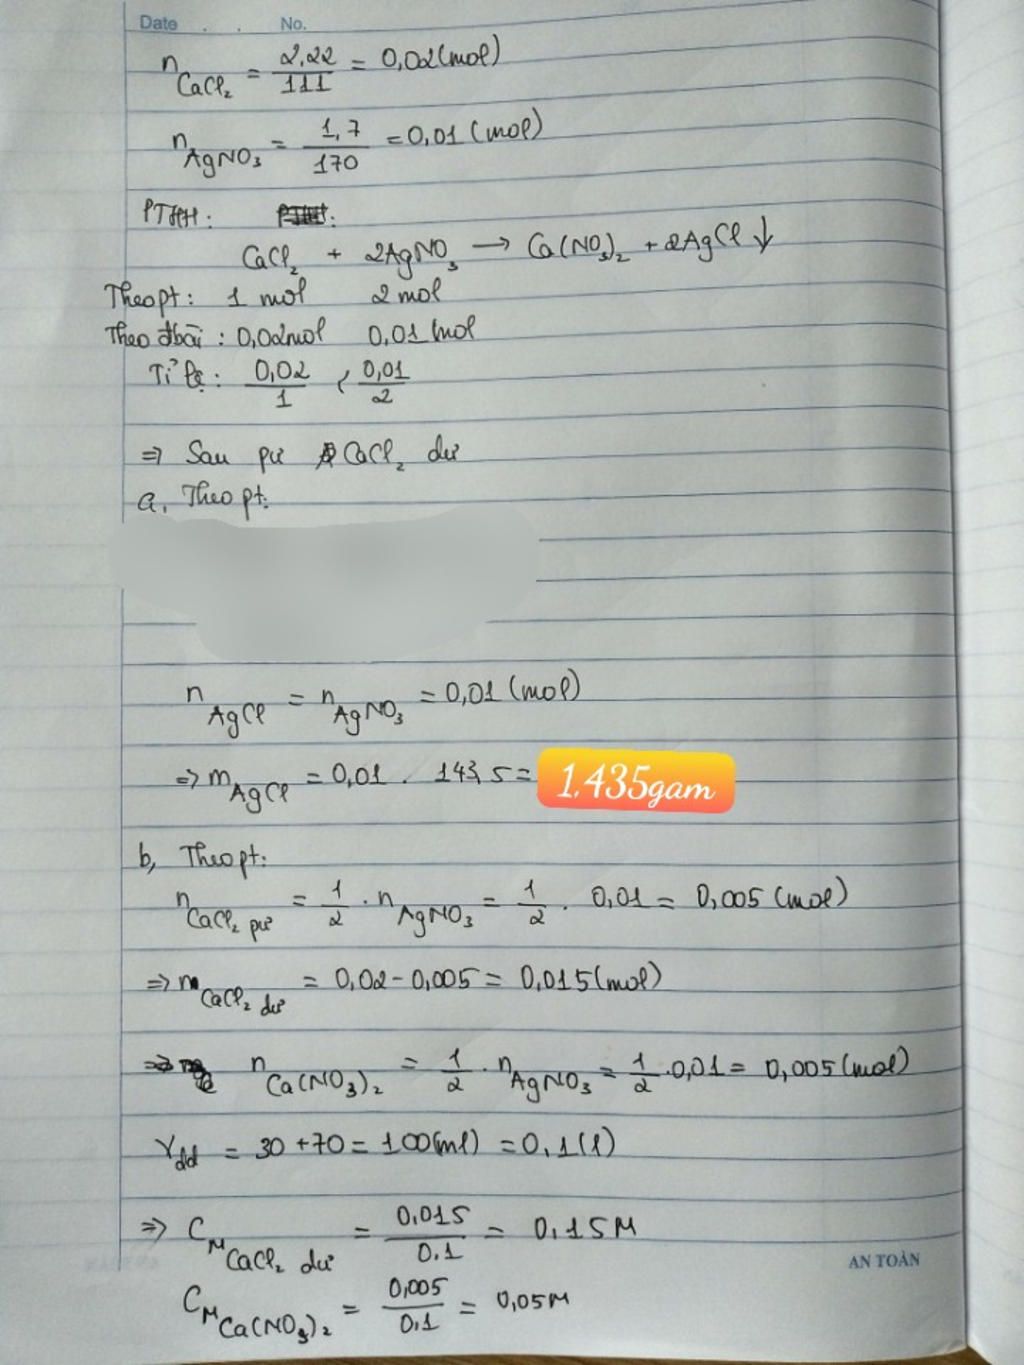 Date . . No.
n CaCl₂ = 2,22/111 = 0,02(mol)
n AgNO₃ = 1,7/170 = 0,01 (mol)
PTHH:
CaCl₂ + 2AgNO₃ → Ca(NO₃)₂ + 2AgCl ↓
Theo pt: 1 mol 2 mol
Theo đbài : 0,02mol 0,01 mol
Tỉ lệ: 0,02/1 < 0,01/2
=> Sau pư CaCl₂ dư
a, Theo pt:
n AgCl = n AgNO₃ = 0,01 (mol)
=> m AgCl = 0,01 . 143,5 = 1.435gam
b, Theo pt:
n CaCl₂ pư = 1/2 . n AgNO₃ = 1/2 . 0,01 = 0,005 (mol)
=> m CaCl₂ dư = 0,02 - 0,005 = 0,015(mol)
n Ca(NO₃)₂ = 1/2 . n AgNO₃ = 1/2 . 0,01 = 0,005(mol)
Vdd = 30 + 70 = 100(ml) = 0,1(l)
=> CM CaCl₂ dư = 0,015/0.1 = 0,15M
AN TOÀN
CM Ca(NO₃)₂ = 0,005/0.1 = 0,05M